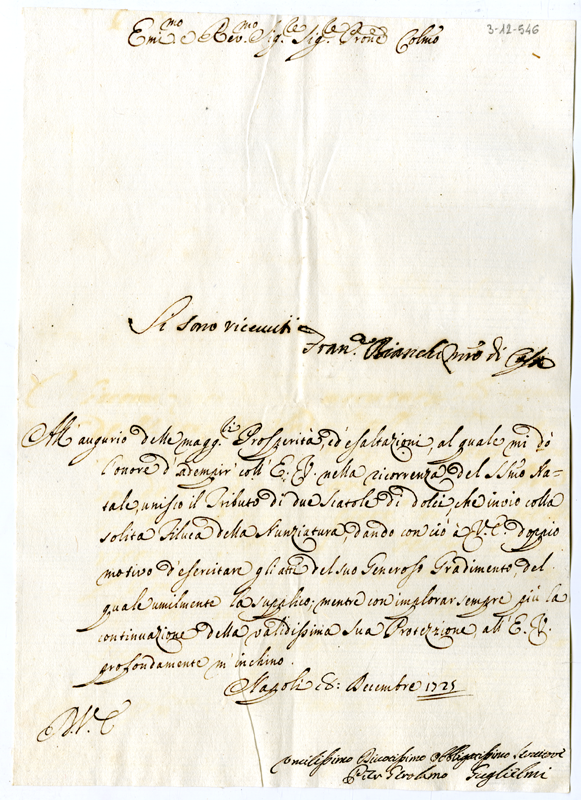 3-12-546
Em.mo e Rev.mo Sig.re Sig.re Pron.e Colmo
Si sono ricevuti
Fran.co Bianchi mro di Casa
All'augurio delle magg.ri Prosperità, ed esaltazioni, al quale mi dò
l'onore d'adempir coll'E. V. nella ricorrenza del SSmo Na-
tale, unisco il Tributo di due Scatole di dolci, che invio colla
solita Filuca della Nunziatura, dando con ciò à V. E. doppio
motivo d'esercitare gli atti del suo Generoso Gradimento, del
quale umilmente la supplico; mentre con implorar sempre più la
continuazione della validissima sua Protezzione, all'E. V.
profondamente m'inchino.
Napoli 8: Decembre 1725
D. V. E.
Umilissimo Divotissimo Obbligatissimo Servitore
Gerolimo Guglielmi